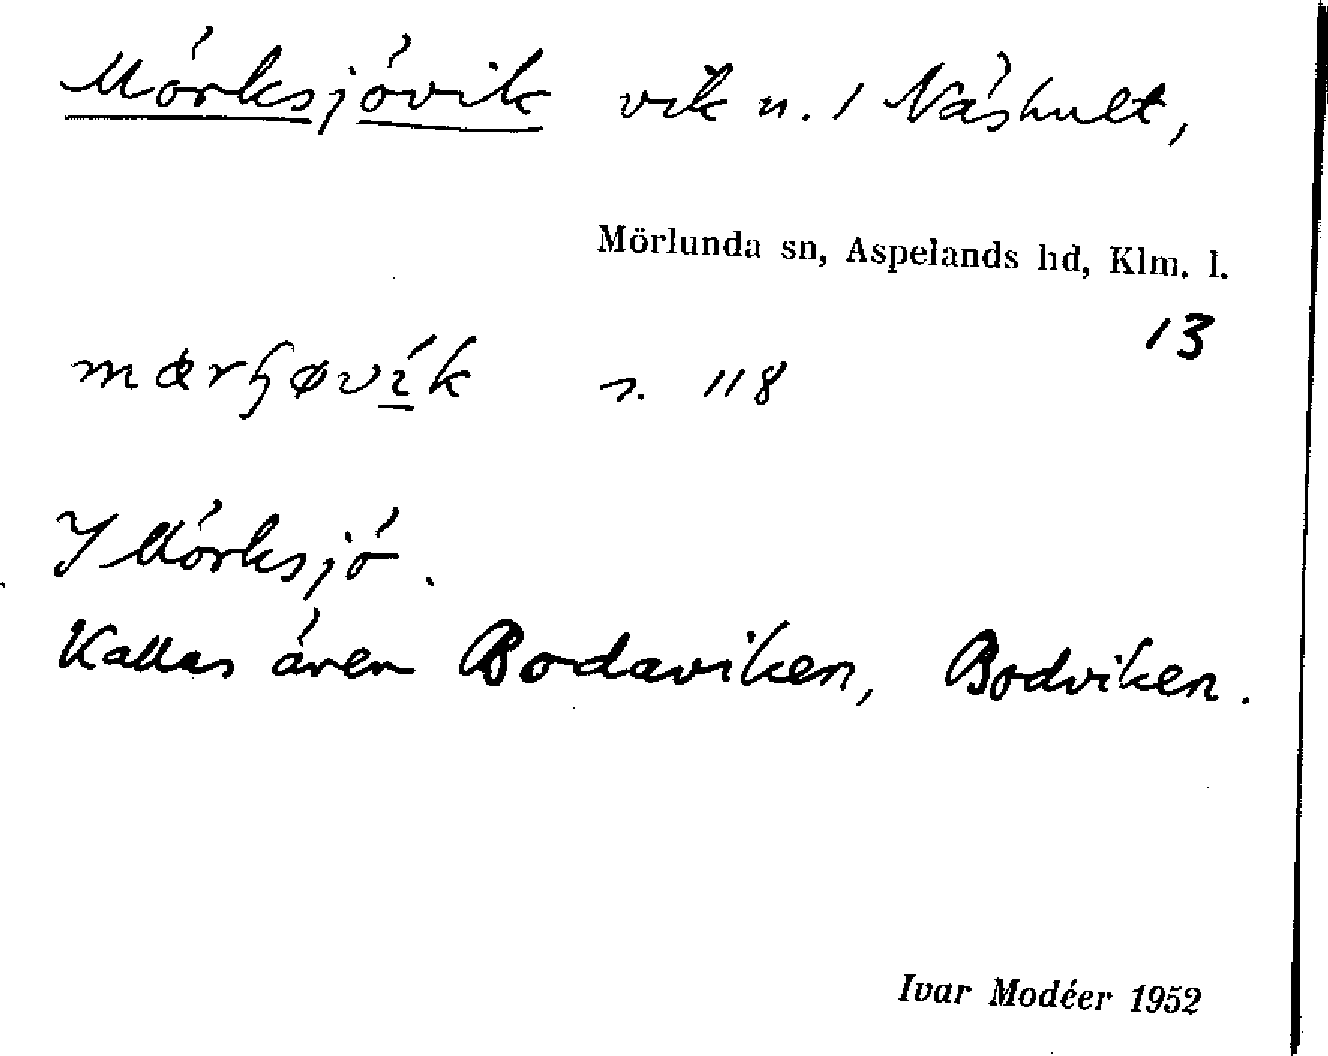 Mörksjövik vik u. / Näshult,
Mörlunda sn, Aspelands hd, Klm. l.
13
mærɧøvík s. 118
I Mörksjö.
Kallas även Bodaviken, Bodviken.
Ivar Modéer 1952